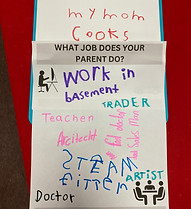 my mom
Cooks
WHAT JOB DOES YOUR
PARENT DO?
Work in
basement
TRADER
Teacher
Architect
STEAM
fitter
ARTIST
Doctor